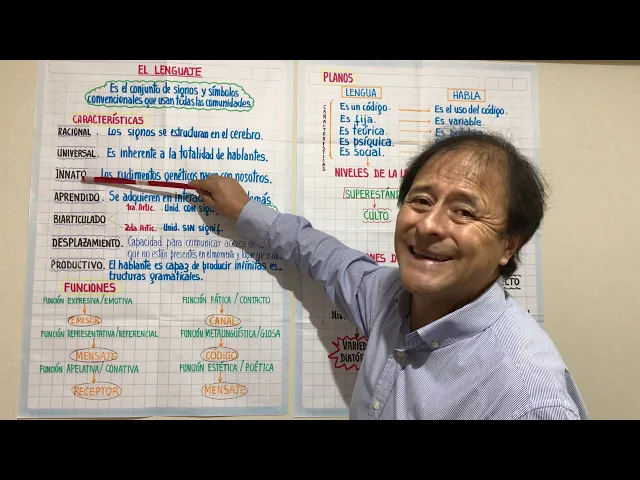 EL LENGUAJE
Es el conjunto de signos y símbolos
convencionales que usan todas las comunidades.
CARACTERÍSTICAS
RACIONAL . Los signos se estructuran en el cerebro.
UNIVERSAL . Es inherente a la totalidad de hablantes.
INNATO . Los rudimentos genéticos nacen con nosotros.
APRENDIDO . Se adquieren en
BIARTICULADO
1ra Artic. Unid. con
2da Artic. Unid. SIN signif.
DESPLAZAMIENTO. Capacidad para comunicar acerca de
que no están presentes en el momento y lugar que se
PRODUCTIVO. El hablante es capaz de producir infinitas es-
tructuras gramaticales.
FUNCIONES
FUNCIÓN EXPRESIVA/EMOTIVA
EMISOR
FUNCIÓN REPRESENTATIVA/REFERENCIAL
MENSAJE
FUNCIÓN APELATIVA/CONATIVA
RECEPTOR
FUNCIÓN FÁTICA/CONTACTO
CANAL
FUNCIÓN METALINGÜÍSTICA/GLOSA
CÓDIGO
FUNCIÓN ESTÉTICA/POÉTICA
MENSAJE
PLANOS
LENGUA
HABLA
CARACTERÍSTICAS
Es un código.
Es el uso del código.
Es fija.
Es variable.
Es teórica.
Es psíquica.
Es social.
NIVELES DE LA
SUPERESTÁN
CULTO